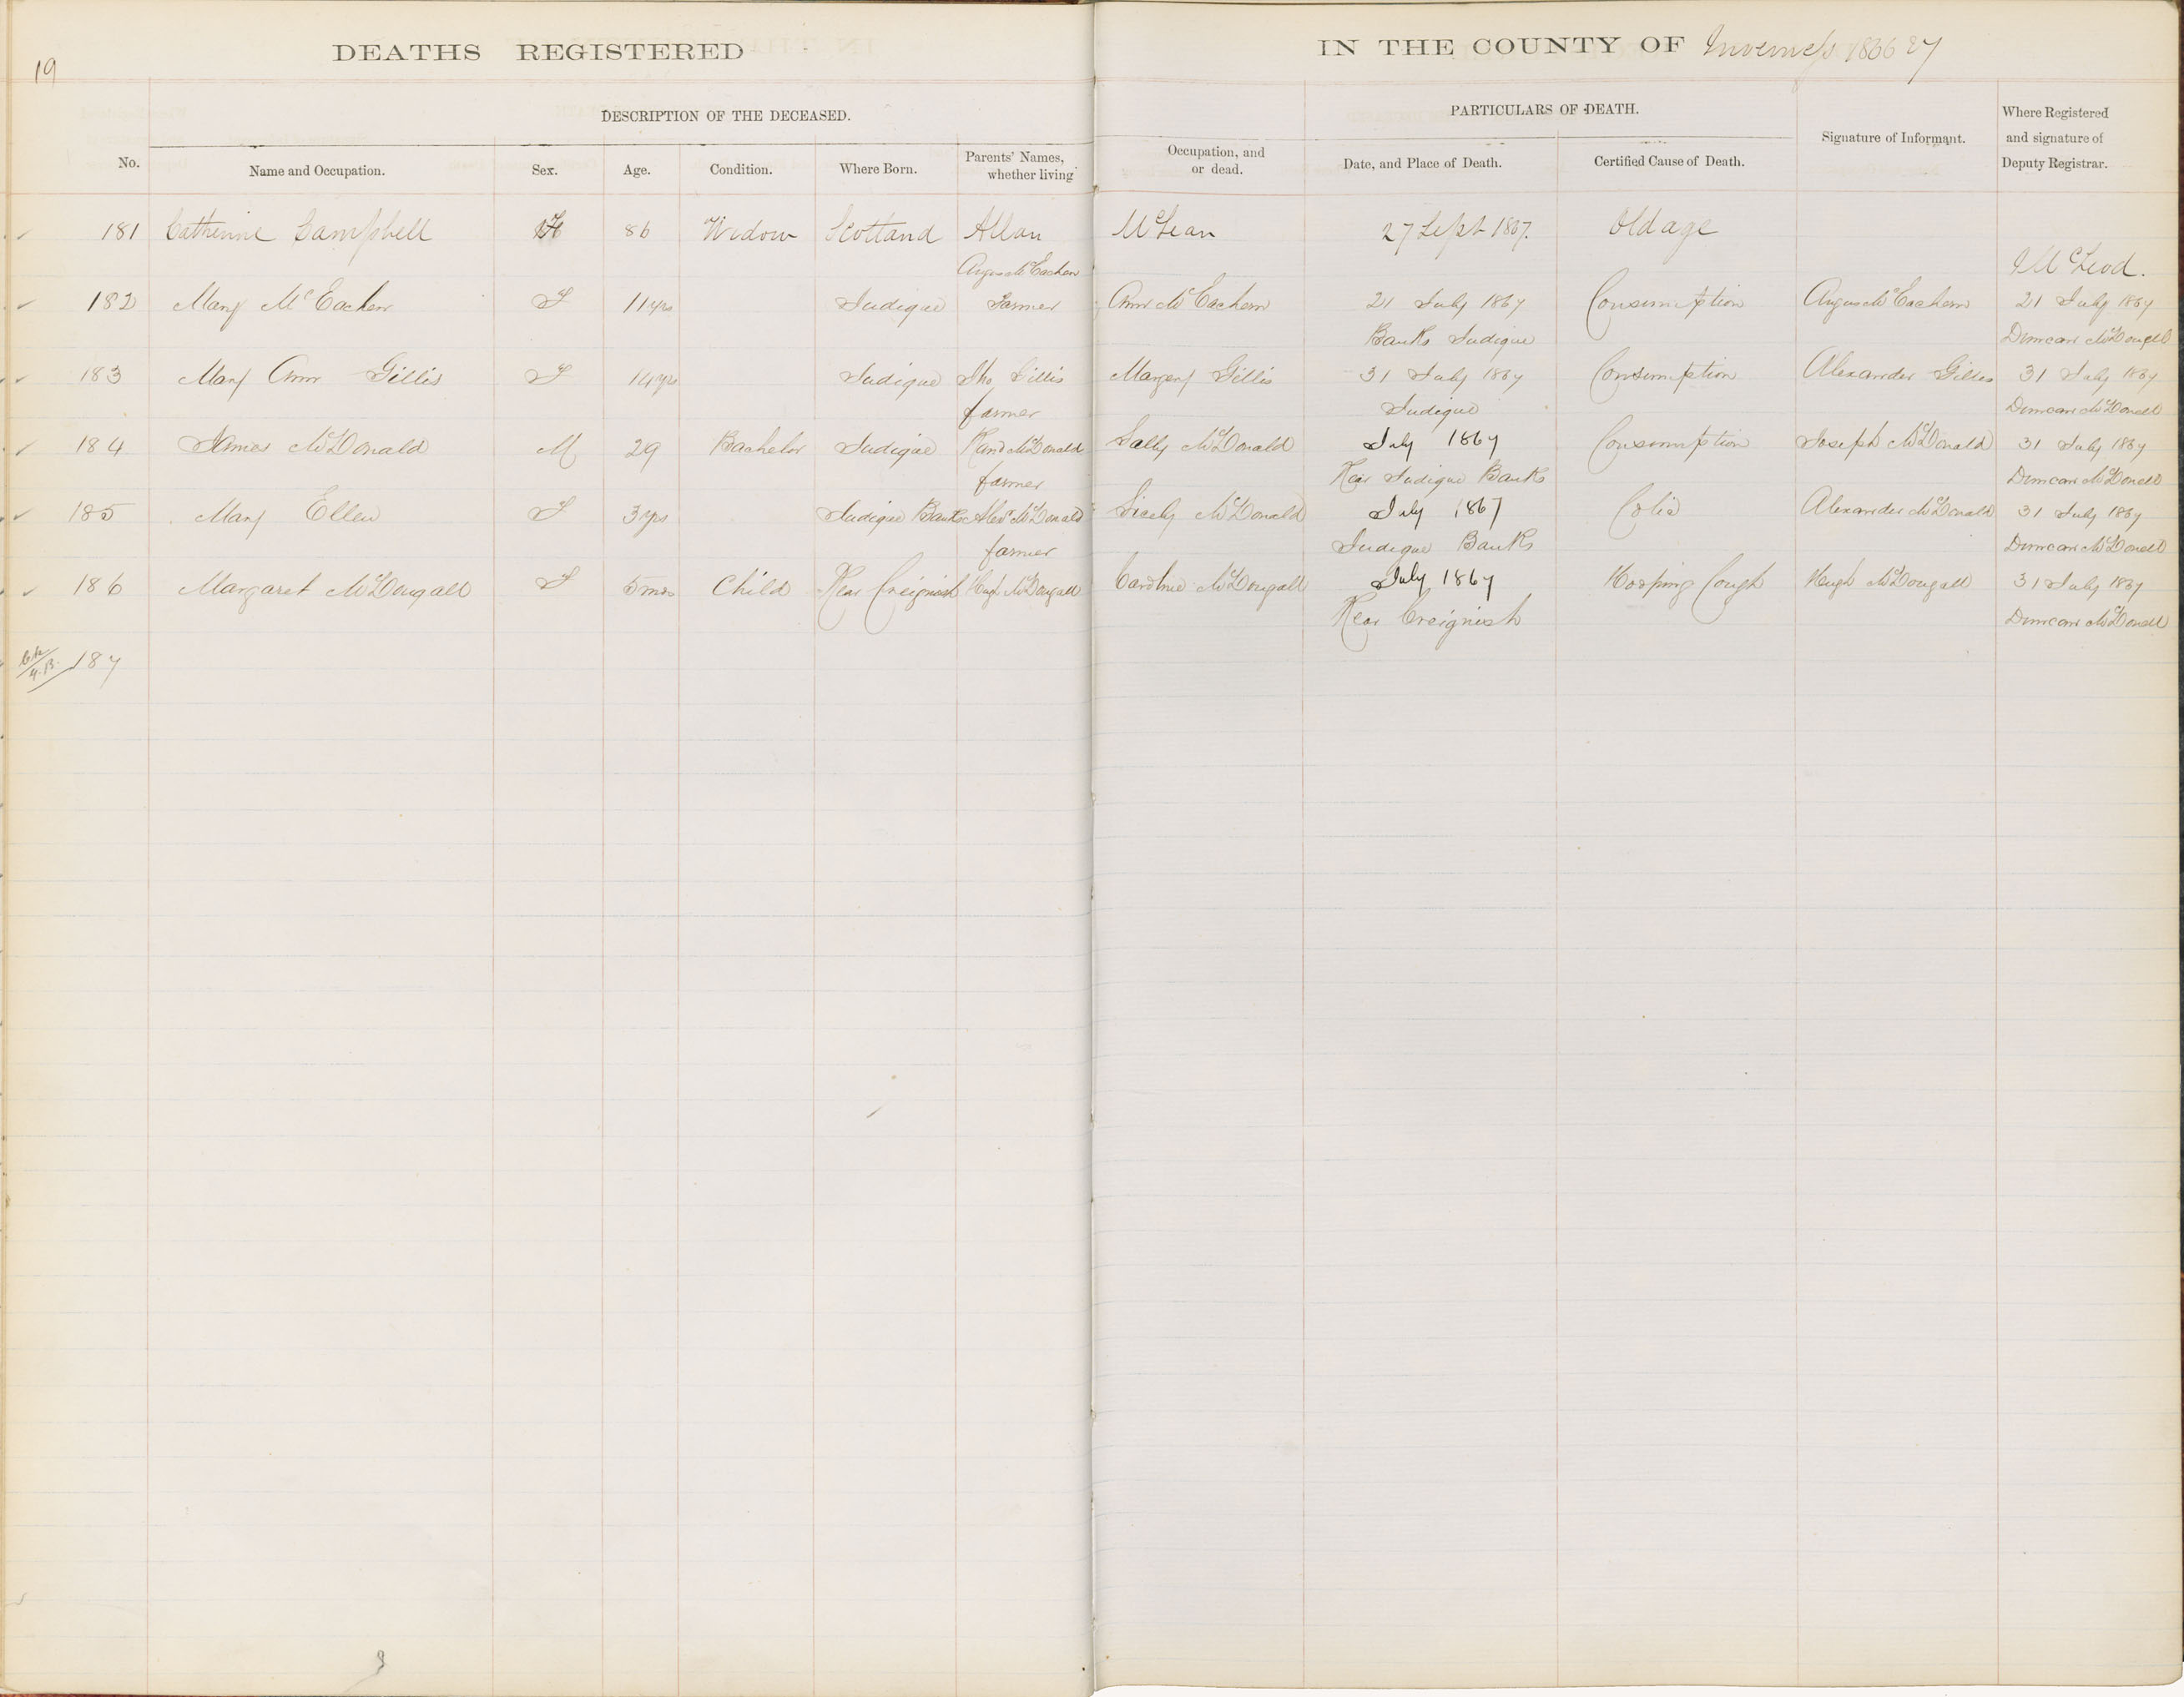 19
DEATHS REGISTERED IN THE COUNTY OF Inverness 1866 & 7
DESCRIPTION OF THE DECEASED. PARTICULARS OF DEATH.
No. Name and Occupation. Sex. Age. Condition. Where Born. Parents' Names, whether living Occupation, and or dead. Date, and Place of Death. Certified Cause of Death. Signature of Informant. Where Registered and signature of Deputy Registrar.
181 Catherine Campbell F 86 Widow Scotland Allan McLean 27 Sept 1867. Old age
Angus McEachen McLeod.
182 Mary McEachen F 11 yrs Judique Farmer Ann McEachern 21 July 1867 Consumption Angus McEachern 21 July 1867
Banks Judique Duncan McDonell
183 Mary Ann Gillis F 14 yrs Judique Jno Gillis Margery Gillis 31 July 1867 Consumption Alexander Gillis 31 July 1867
farmer Judique Duncan McDonell
184 James McDonald M 29 Bachelor Judique Rand McDonald Sally McDonald July 1867 Consumption Joseph McDonald 31 July 1867
farmer Rear Judique Banks Duncan McDonell
185 Mary Ellen F 3 yrs Judique Banks Alexr McDonald Sicely McDonald July 1867 Colic Alexander McDonald 31 July 1867
farmer Judique Banks Duncan McDonell
186 Margaret McDougall F 5 mos Child Rear Creignish Hugh McDougall Caroline McDougall July 1867 Hooping Cough Hugh McDougall 31 July 1867
Rear Creignish Duncan McDonell
187